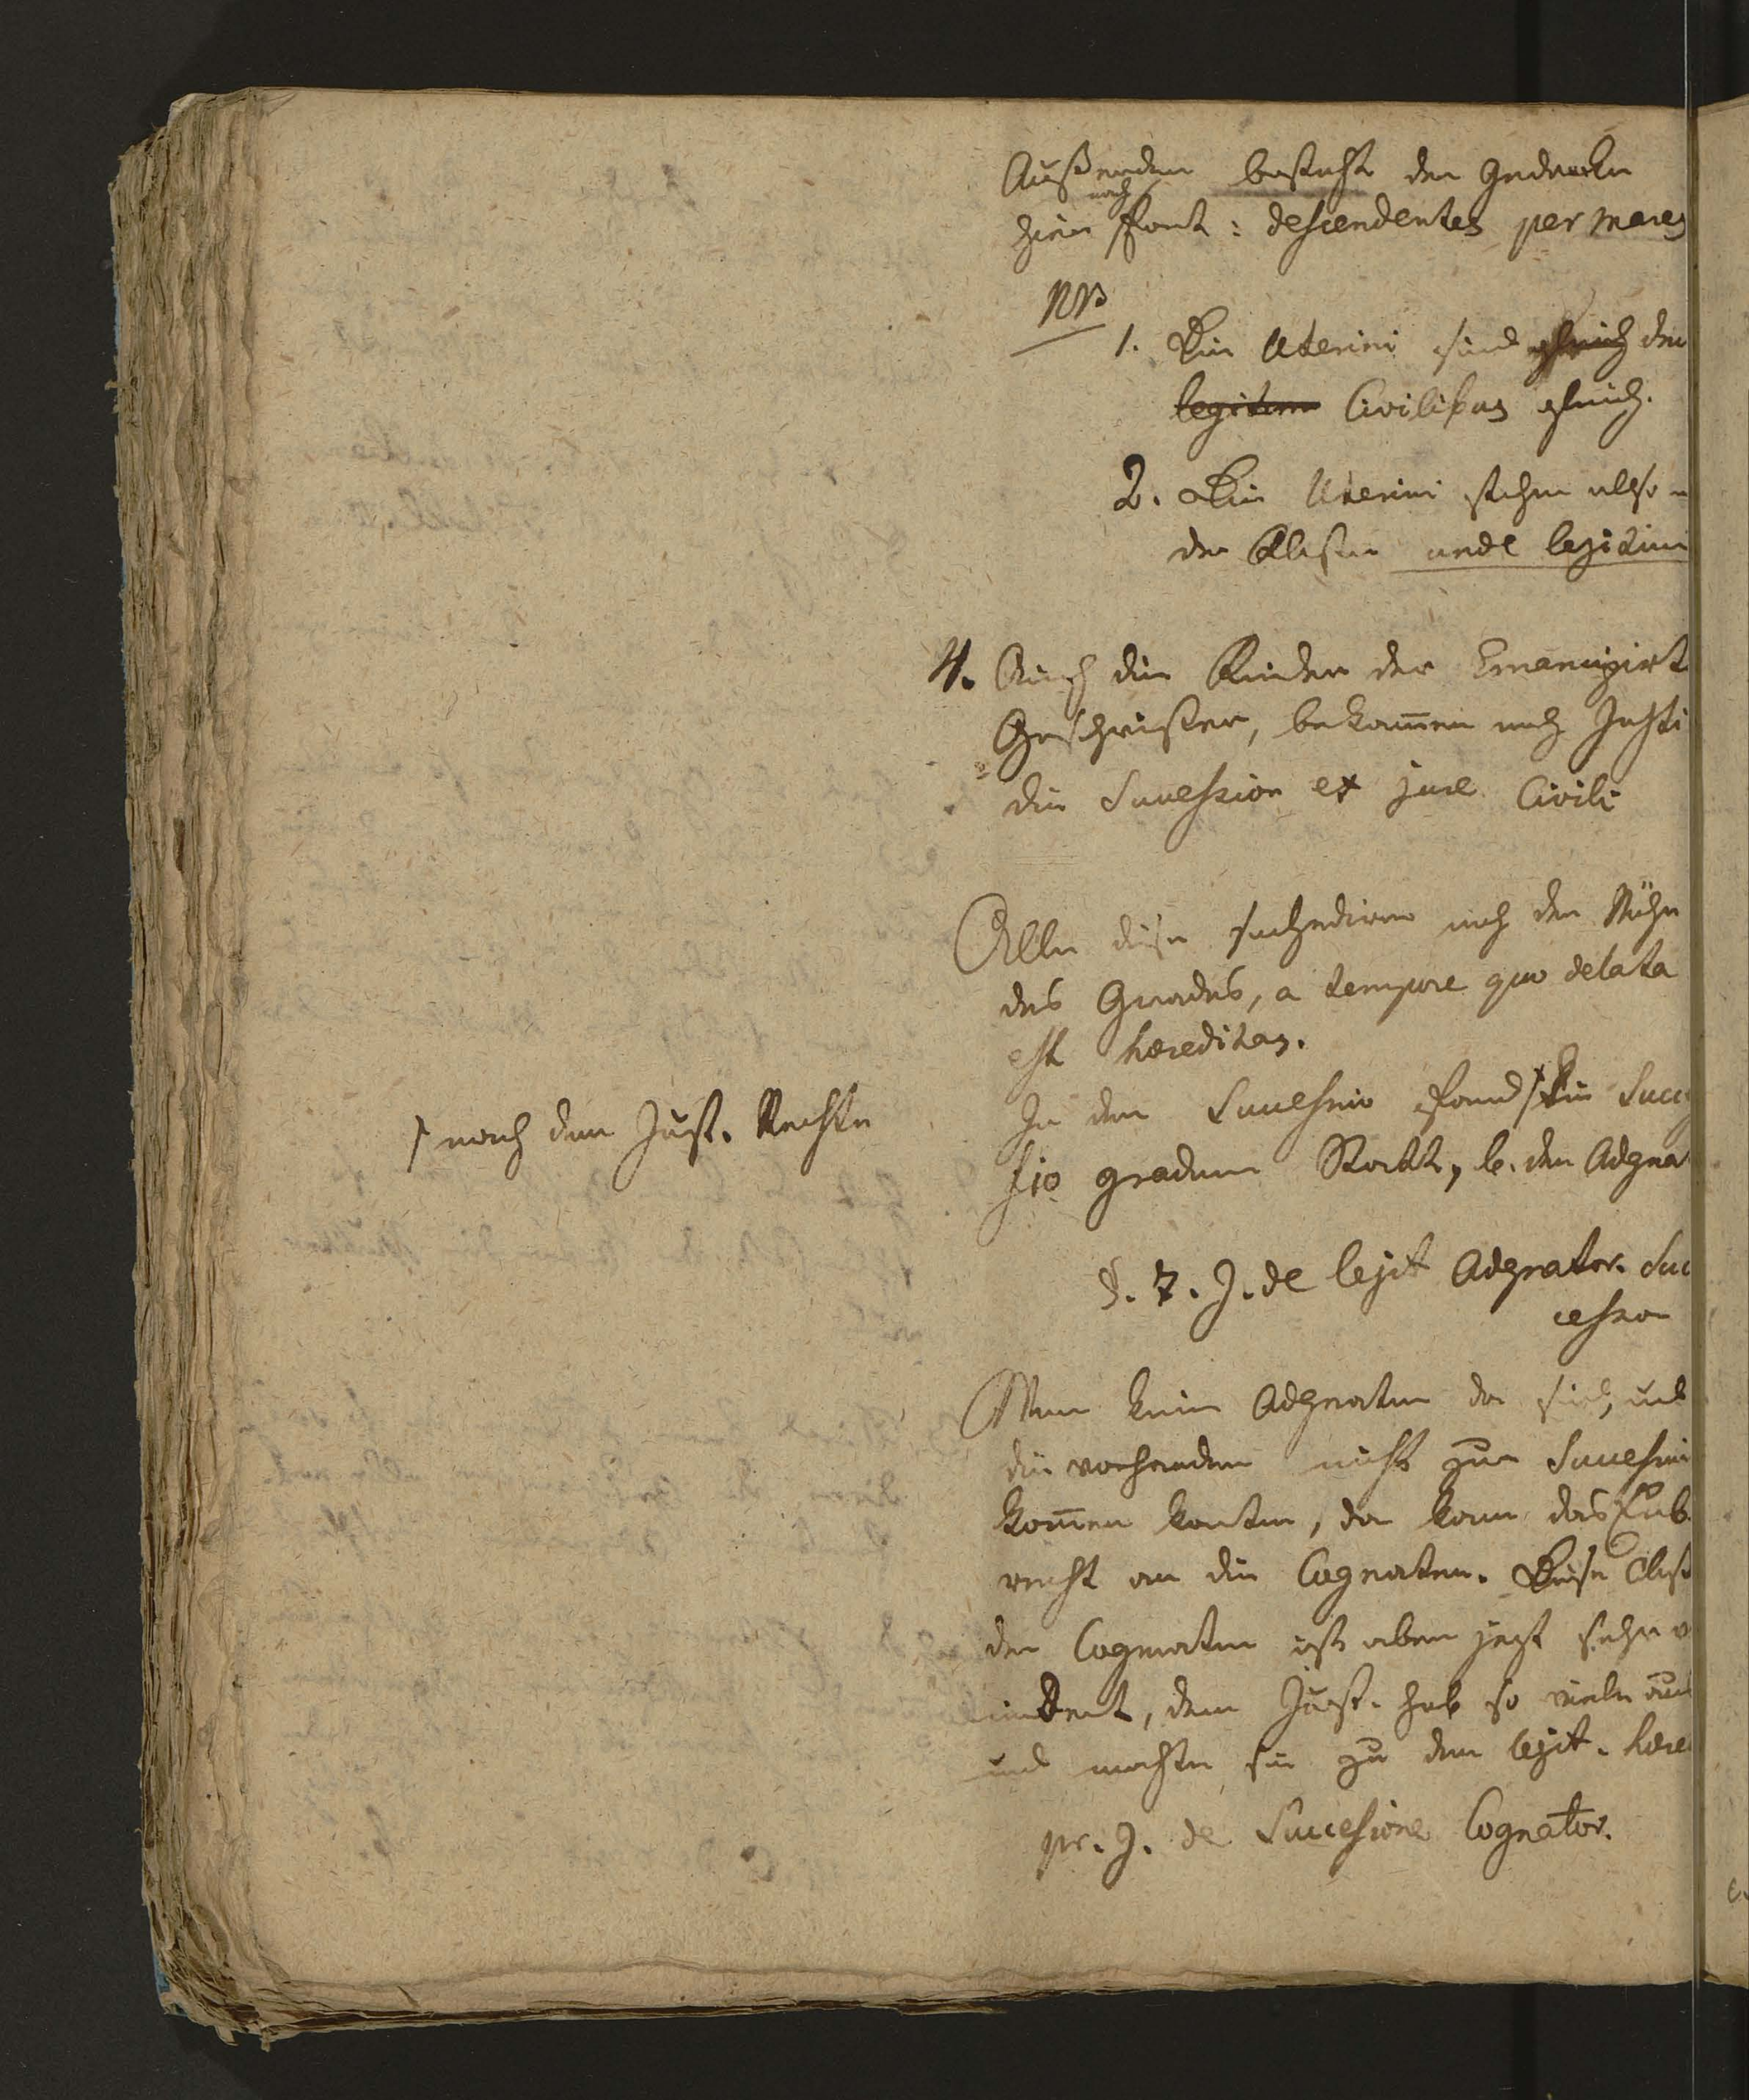 Außerdem besteht der Gedanke
hier noch fort: descendentes per mares
NB
1. Die Uterini sind gleich den
legitim Civilibus gleich.
2. Die Uterini stehen also
der Classe unde legitimi
4. Auch die Kinder der Emancipirt
Geschwister, bekom̄en nach Justi
die Succession ex jure Civili
Alle diese succediren nach der Nähe
des Grades, a tempore quo delata
est hæreditas.
In der Succession fand / die Succes
/ nach dem Just. Rechte
sio graduum Statt, b. den Adgna
§. 7. J. de legit Adgnator. Suc
cession
Wenn keine Adgnaten da sind, und
die vorhanden nicht zur Succession
kom̄en konten, da kam das Erb
recht an die Cognaten. Diese Class
der Cognaten ist aber jezt sehr v
indert, denn Just. hob so viele aus
und machte sie zu den legit. hære
pr. J. de Successione Cognator.